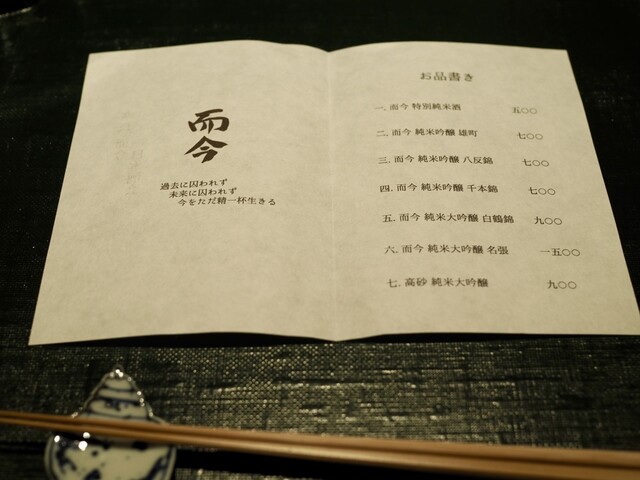 而今
過去に囚われず
未来に囚われず
今をただ精一杯生きる
お品書き
一. 而今 特別純米酒 五〇〇
二. 而今 純米吟醸 雄町 七〇〇
三. 而今 純米吟醸 八反錦 七〇〇
四. 而今 純米吟醸 千本錦 七〇〇
五. 而今 純米大吟醸 白鶴錦 九〇〇
六. 而今 純米大吟醸 名張 一五〇〇
七. 高砂 純米大吟醸 九〇〇